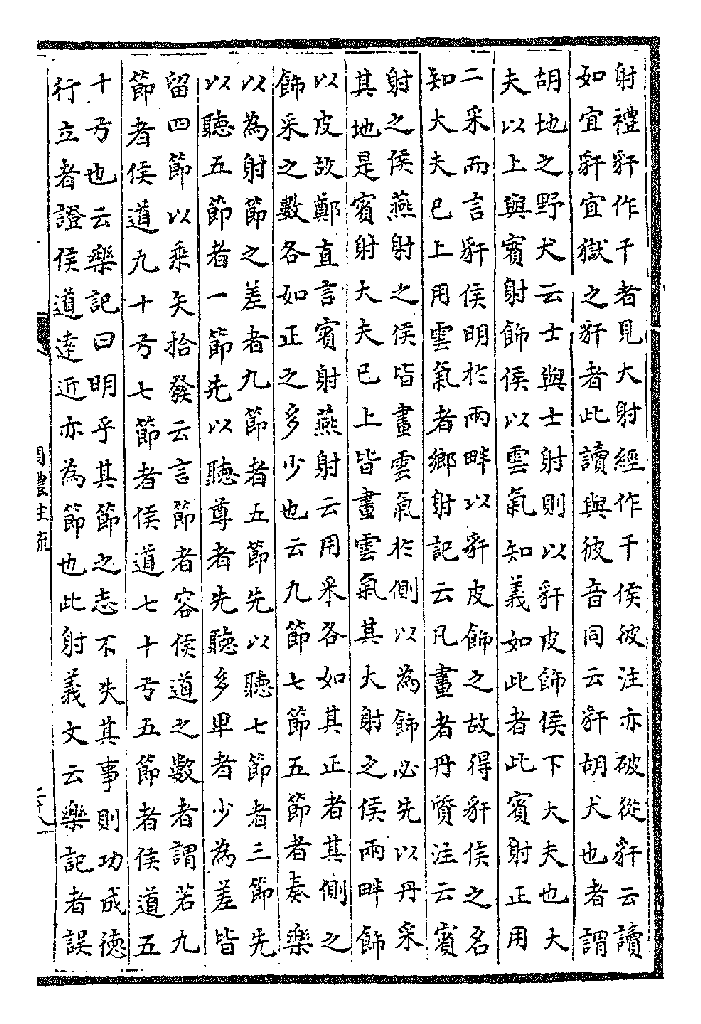 射禮豻作干者見大射經作干侯彼注亦破從豻云讀
如宜豻宜獄之豻者此讀與彼音同云豻胡犬也者謂
胡地之野犬云士與士射則以豻皮飾侯下大夫也大
夫以上與賓射飾侯以雲氣知義如此者此賓射正用
二采而言豻侯明於兩畔以豻皮飾之故得豻侯之名
知大夫已上用雲氣者鄉射記云凡畫者丹質注云賓
射之侯燕射之侯皆畫雲氣於側以為飾必先以丹采
其地是賓射大夫已上皆畫雲氣其大射之侯兩畔飾
以皮故鄭直言賓射燕射云用采各如其正者其側之
飾采之數各如正之多少也云九節七節五節者奏樂
以為射節之差者九節者五節先以聽七節者三節先
以聽五節者一節先以聽尊者先聽多卑者少為差皆
留四節以乘矢拾發云言節者容侯道之數者謂若九
節者侯道九十弓七節者侯道七十弓五節者侯道五
十弓也云樂記曰明乎其節之志不失其事則功成德
行立者證侯道遠近亦為節也此射義文云樂記者誤
周禮注疏